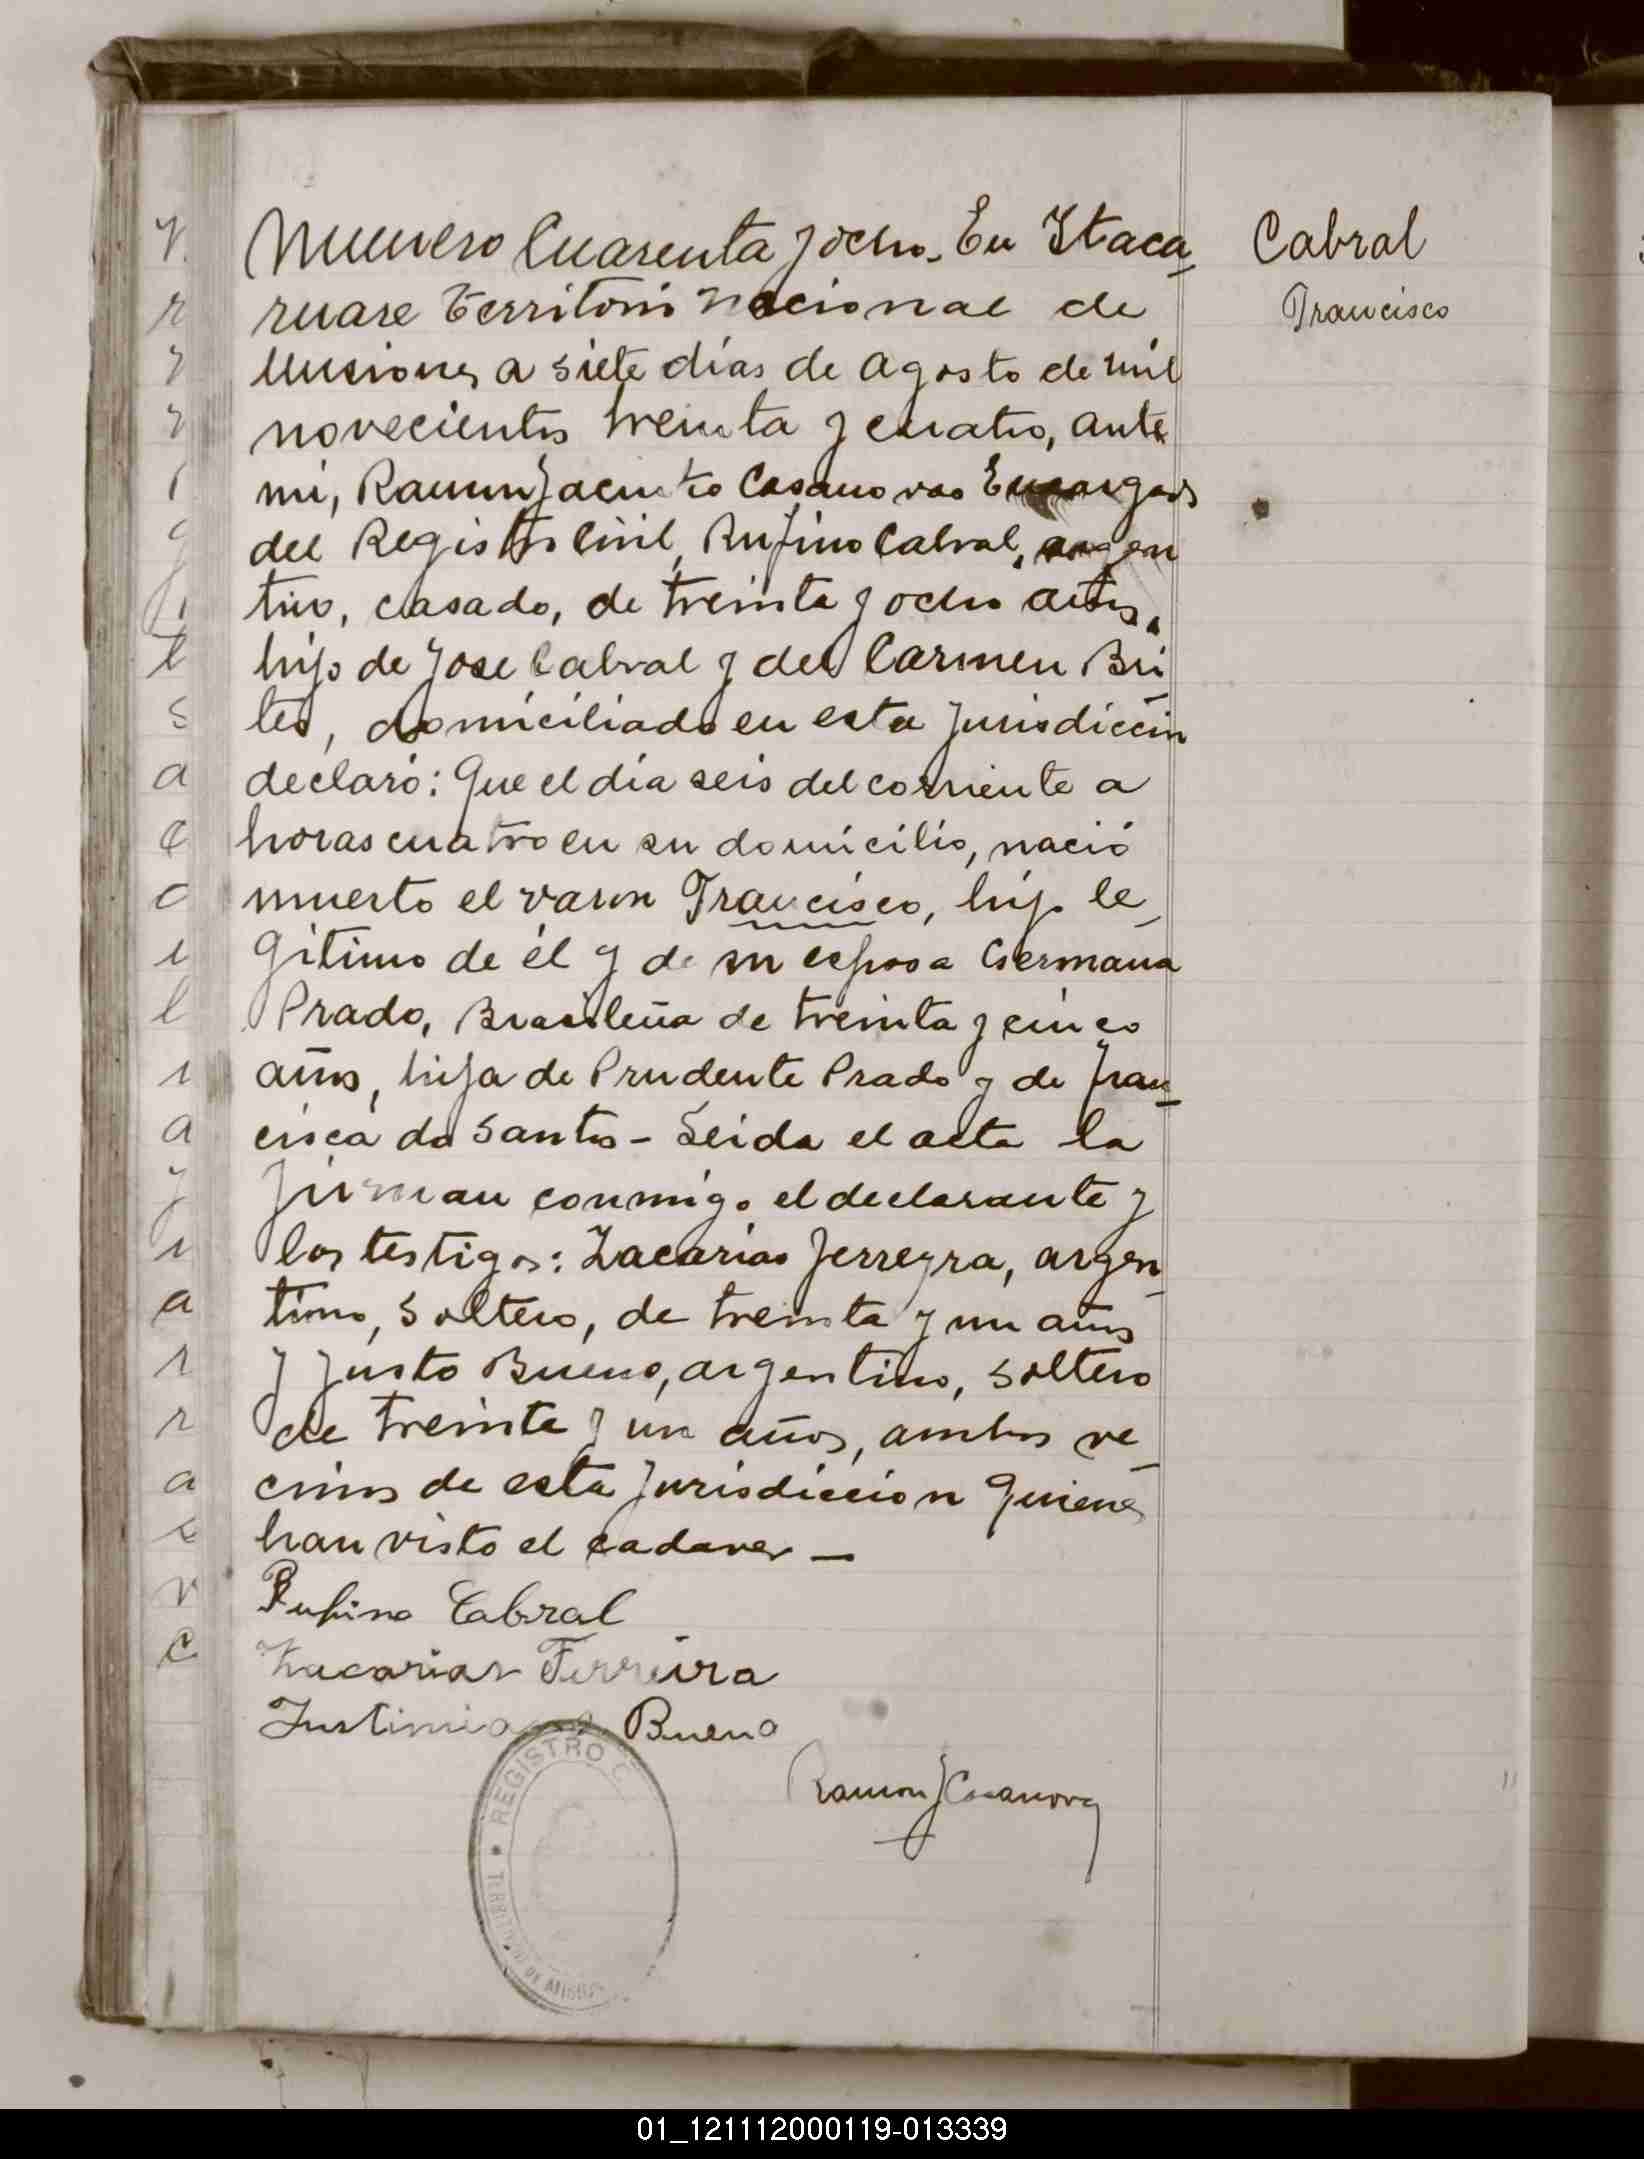 Numero Cuarenta y ocho. En Itaca-
ruare territorio Nacional de
Misiones a siete días de Agosto de mil
novecientos treinta y cuatro, ante
mi, Ramon Jacinto Casanovas Encargado
del Registro Civil, Rufino Cabral, argen
tino, casado, de treinta y ocho años,
hijo de Jose Cabral y del Carmen Bri
tes, domiciliado en esta jurisdicción
declaró: Que el día seis del corriente a
horas cuatro en su domicilio, nació
muerto el varon Francisco, hijo le-
gitimo de él y de su esposa Germana
Prado, Brasileña de treinta y cinco
años, hija de Prudente Prado y de Fran-
cisca do Santos - Leida el acta la
firman conmigo el declarante y
los testigos: Zacarias Ferreyra, argen-
tino, soltero, de treinta y un años
y Justo Bueno, argentino, soltero
de treinta y un años, ambos ve-
cinos de esta jurisdiccion quienes
han visto el cadaver —
Rufino Cabral
Zacarias Ferreira
Justiniano Bueno
Ramon J Casanova
REGISTRO C
TERRITORIO DE MISIO
Cabral
Francisco
01_121112000119-013339